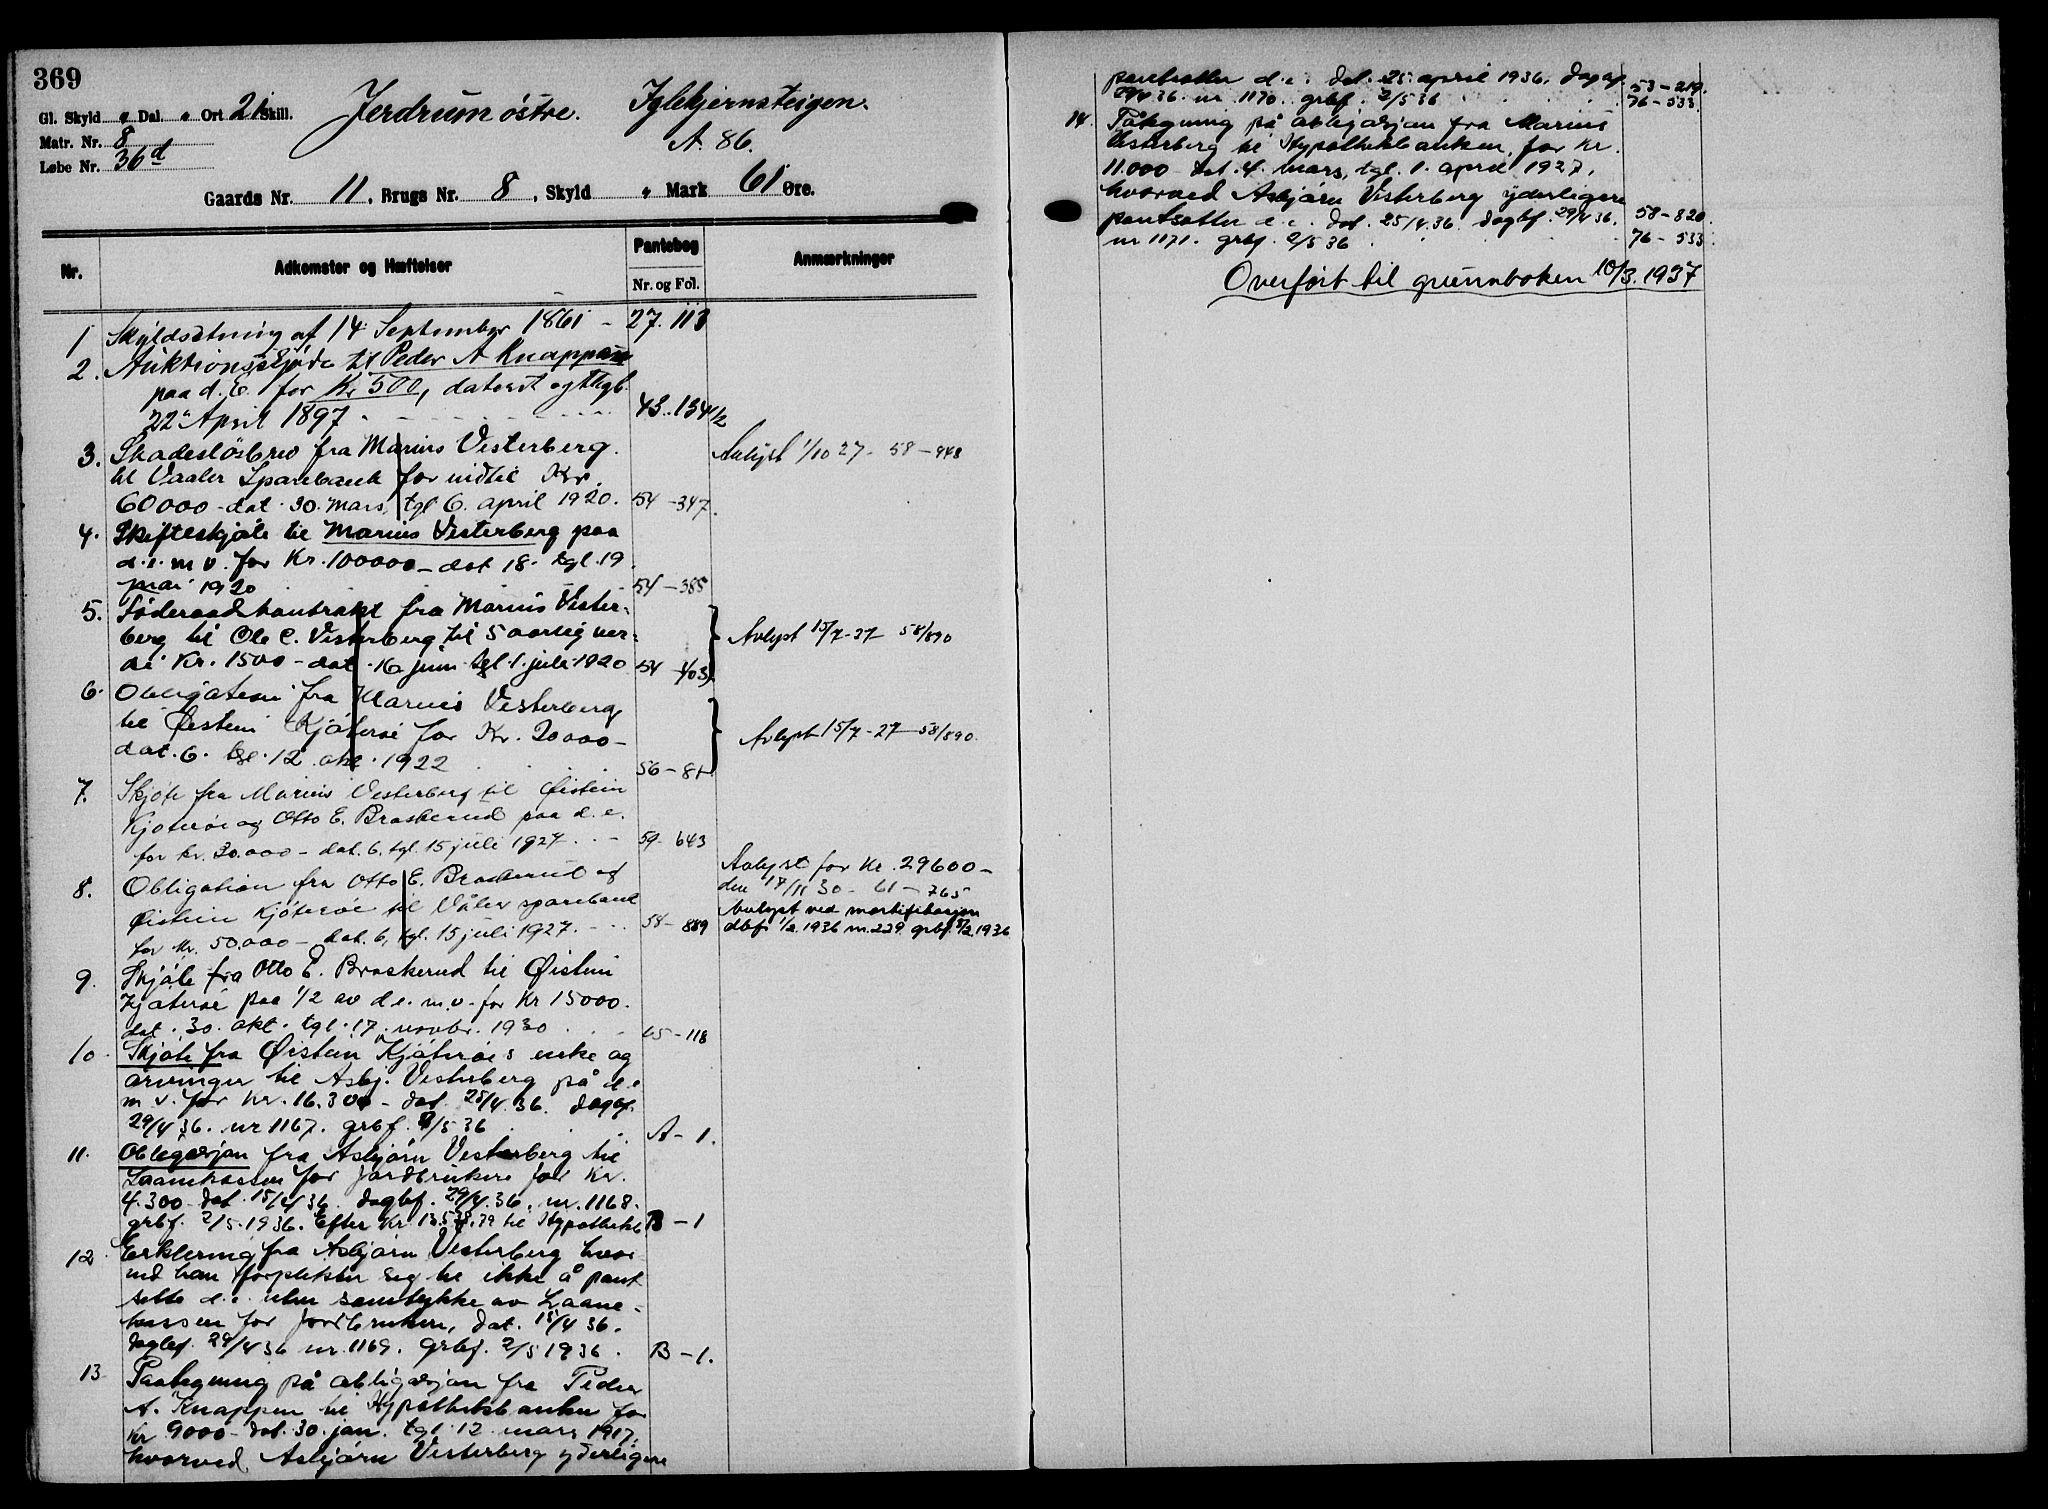 369
Gl. Skyld " Dal. " Ort 21 Skill. Jerdrum østre. Iglekjernsteigen.
Matr. Nr. 8 A. 86.
Løbe Nr. 36d
Gaards Nr. 11, Brugs Nr. 8, Skyld " Mark 61 Øre.
Nr. Adkomster og Hæftelser Pantebog Nr. og Fol. Anmærkninger
1 Skyldsætning af 14 September 1861 - 27. 113
2. Auktionsskjøde til Peder A Knappen
paa d. E. for Kr 500, dateret og thgl.
22 April 1897 - 43. 134 1/2
3. Skadesløsbrev fra Marius Vesterberg
til Vaaler Sparebank for indtil Kr.
60000 - dat. 30. mars, tgl 6. april 1920. 54 - 347.
Avlyst 1/10 27 - 58 - 948
4. Skifteskjøte til Marius Vesterberg paa
d. e. m v. for Kr. 100000 - dat 18. tgl. 19.
mai 1920 54 - 385
5. Føderaadkontrakt fra Marius Vester-
berg til Ole C. Vesterberg til 5 aarlig ver-
di Kr. 1500 - dat. 16 juni tgl. 1. juli 1920 54 - 403
Avlyst 15/7 - 27 58/890
6. Obligation fra Marius Vesterberg
til Øistein Kjøterøi for Kr. 20000 -
dat. 6. tgl. 12. okt. 1922 56 - 81
Avlyst 15/7 - 27 58/890.
7. Skjøte fra Marius Vesterberg til Øistein
Kjøterøi og Otto E. Braskerud paa d. e.
for kr. 30.000 - dat. 6, tgl. 15 juli 1927. - 59 - 643
8. Obligation fra Otto E. Braskerud og
Øistein Kjøterøi til Våler sparebank
for kr. 50.000 - dat. 6, tgl. 15 juli 1927. - 58 - 889
Avlyst for Kr. 29600 -
den 17/11 30 - 61 - 765
Avlyst ved mortifikasjon
dbf. 1/2. 1936 nr. 229. grbf. 1936
9. Skjøte fra Otto E. Braskerud til Øistein
Kjøterøi paa 1/2 av d. e. m. v. for Kr 15000.
dat. 30. okt. tgl. 17. novbr. 1930 65 - 118
10. Skjøte fra Øistein Kjøterøi's enke og
arvinger til Asbj. Vesterberg på d. e
m. v. for Kr. 16.300 - dat. 25/4. 36. dagbf.
29/4 36. nr 1167. grbf. 2/5 36 A - 1.
11. Obligasjon fra Asbjørn Vesterberg til
Laanekassen for Jordbrukere for Kr.
4.300 dat. 15/4 36. dagbf. 29/4. 36. nr. 1168.
grbf. 2/5. 1936. Efter Kr 13.538,79 til Hypothekb. B - 1
12. Erklering fra Asbjørn Vesterberg hvor
ved han forplikter sig til ikke å pant
sette d. e. uten samtykke av Laane-
kassen for Jordbrukere, dat. 15/4 36.
dagbf. 29/4 36 nr. 1169. grbf. 2/5 1936. B - 1.
13. Paategning på obligasjon fra Peder
A. Knappen til Hypothekbanken for
Kr 9000 - dat. 30. jan. tgl. 12. mars 1917,
hvorved Asbjørn Vesterberg yderligere
pantsetter d. e. dat. 25. april 1936. dagbf. 53 - 219.
29/4 36. nr 1170. grbf. 2/5 36 76 - 533
14. Påtegning på obligasjon fra Marius
Vesterberg til Hypothekbanken, for Kr.
11.000 dat. 4. mars, tgl. 1. april 1927,
hvorved Asbjørn Vesterberg yderligere
pantsetter d. e. dat. 25/4. 36. dagbf. 29/4 36. 58 - 820.
nr 1171. grbf. 2/5 36 76 - 533
Overført til grunnboken 10/3. 1937